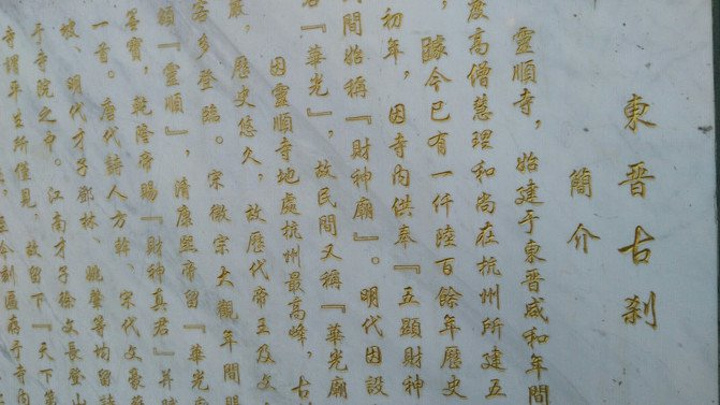 東晋古刹
簡介
靈順寺，始建于東晋咸和年間
度高僧慧理和尚在杭州所建五
，今已有一仟陸百餘年歷史
初年，因寺内供奉『五顯財神
間始稱『財神廟』。明代因設
『華光』，故民間又稱『華光廟
因靈順寺地處杭州最高峰，古
嚴，歷史悠久，故歷代帝王及文
客多登臨。宋徽宗大觀年間
額『靈順』，清康熙帝留『華光
墨寶，乾隆帝賜『財神真君』并
一首。唐代詩人方幹、宋代文豪
坡、明代才子鄧林、姚肇等均留詩
于寺院之中。江南才子徐文長登山
寺謂平生所僅見，故留下『天下第
至今刻匾存于寺内